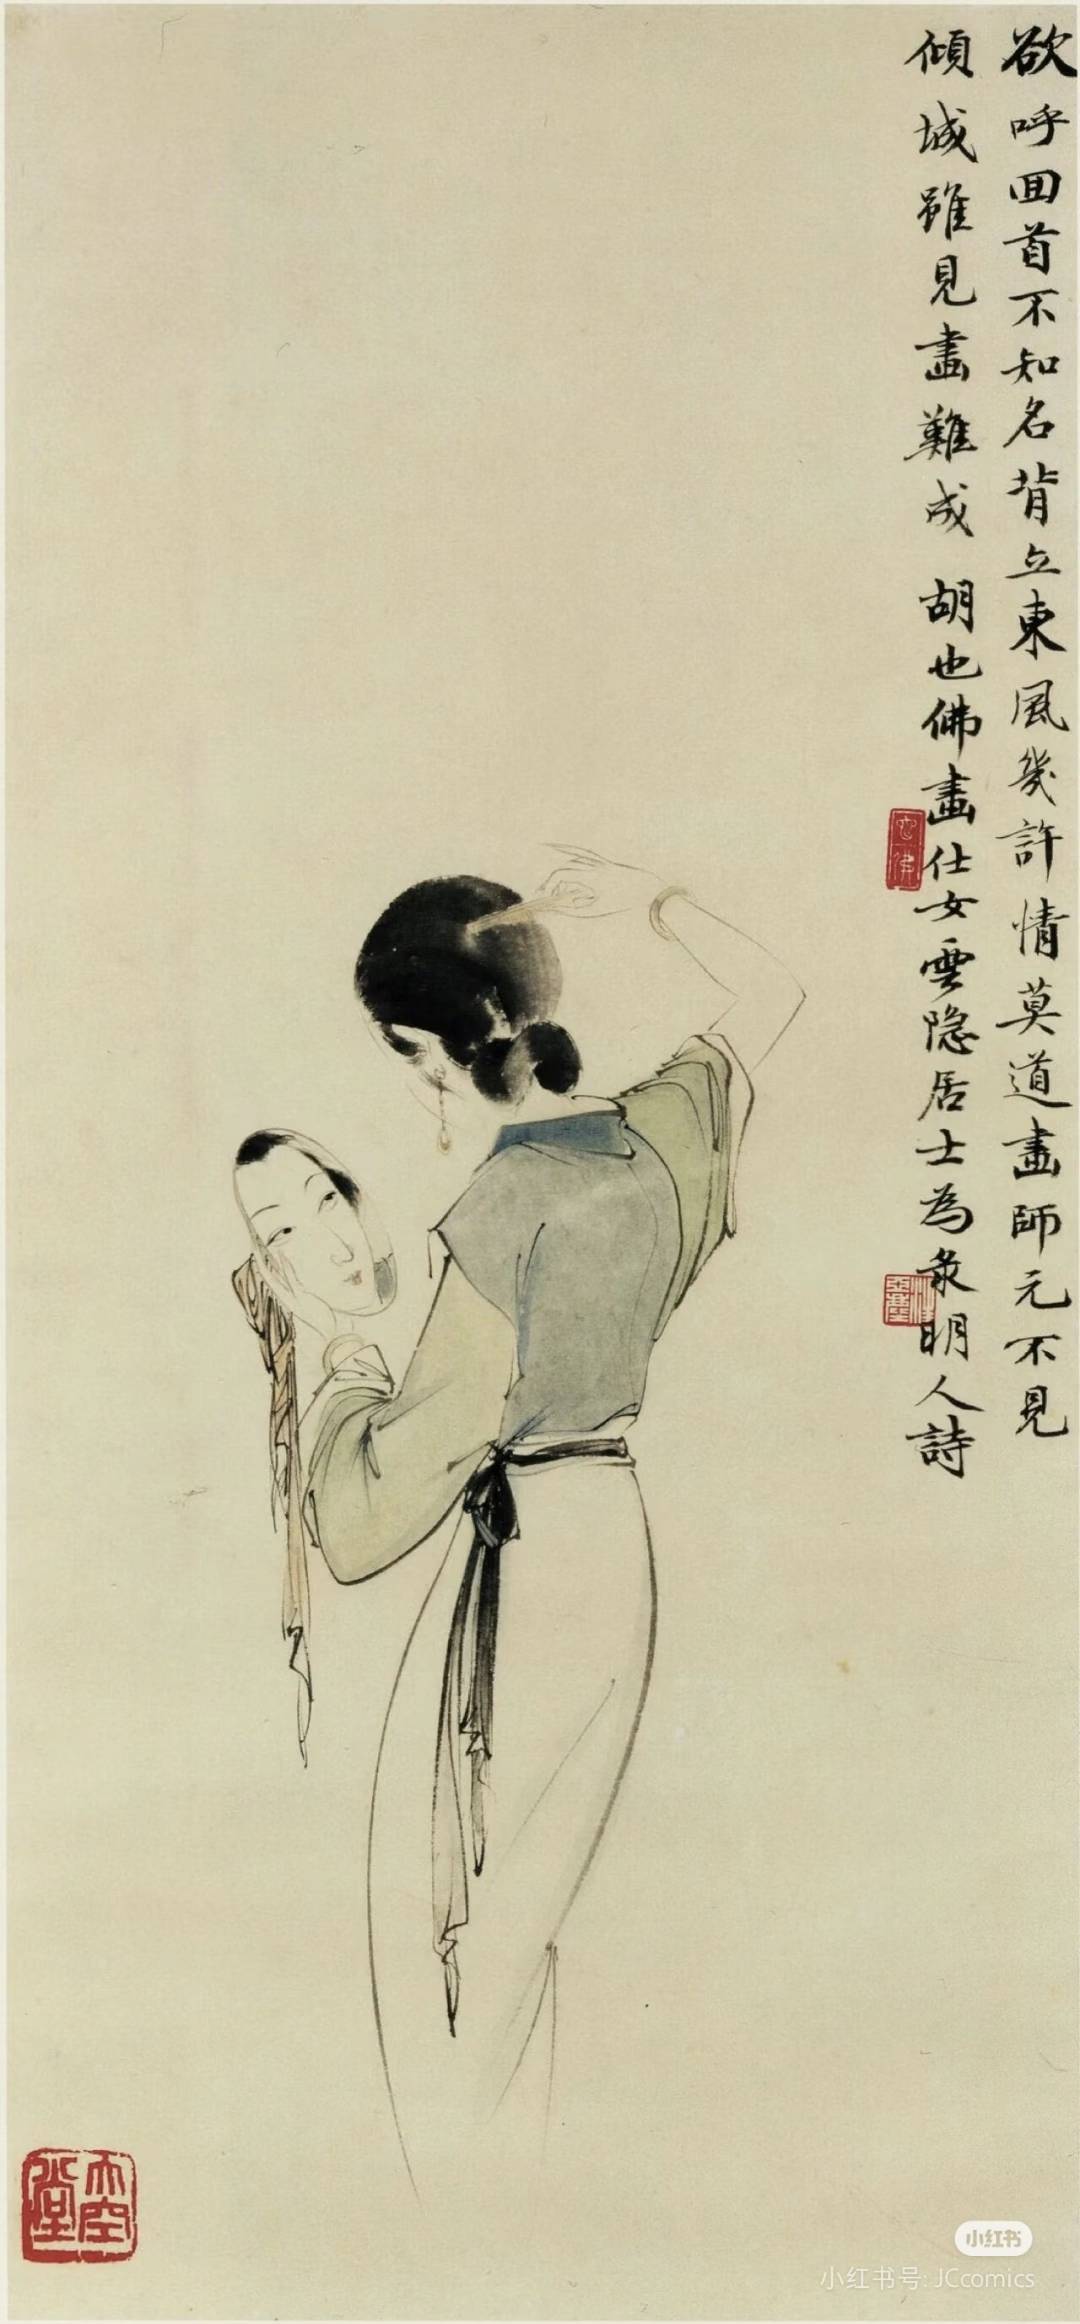 欲呼回首不知名背立東風幾許情莫道畫師元不見
傾城雖見畫難成 胡也佛畫仕女雲隐居士為录明人詩
大空堂
小红书
小红书号: JCcomics